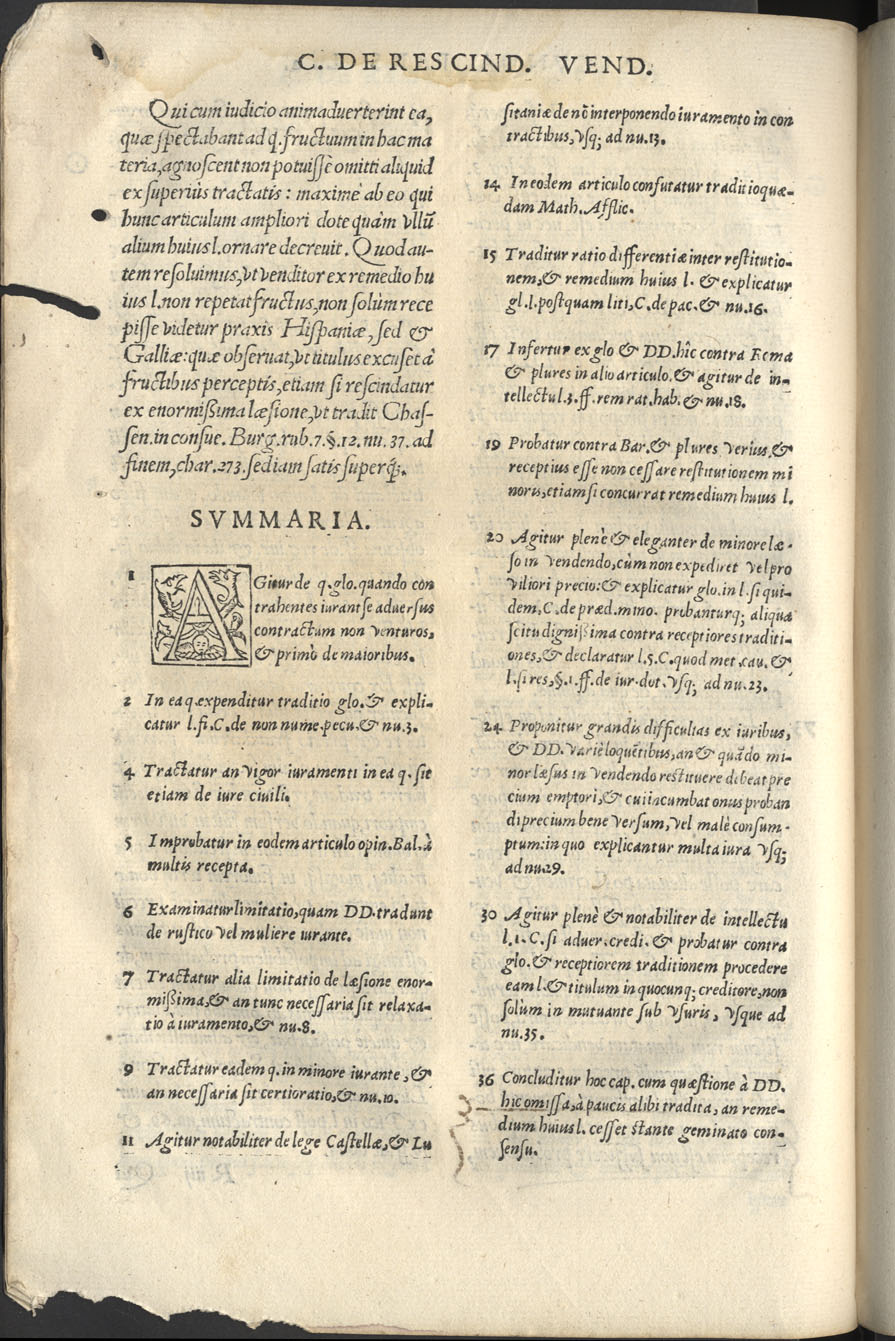 C. DE RESCIND. VEND.
Qui cum iudicio animaduerterint ea,
quæ spectabant ad q̃. fructuum in hac ma
teria, agnoscent non potuisse omitti aliquid
ex superiùs tractatis: maximè ab eo qui
hunc articulum ampliori dote quàm vllũ
alium huius l. ornare decreuit. Quod au-
tem resoluimus, vt venditor ex remedio hu
ius l. non repetat fructus, non solùm rece
pisse videtur praxis Hispaniæ, sed &
Galliæ: quæ obseruat, vt titulus excuset à
fructibus perceptis, etiam si rescindatur
ex enormißima læsione, vt tradit Chas-
sen. in consue. Burg. rub. 7. §. 12. nu. 37. ad
finem, char. 273. sed iam satis superq́;.
SVMMARIA.
1 AGitur de q. glo. quando con
trahentes iurant se aduersus
contractum non venturos,
& primò de maioribus.
2 In ea q. expenditur traditio glo. & expli-
catur l. fi. C. de non nume. pecu. & nu. 3.
4 Tractatur an vigor iuramenti in ea q. sit
etiam de iure ciuili.
5 Improbatur in eodem articulo opin. Bal. à
multis recepta.
6 Examinatur limitatio, quam DD. tradunt
de rustico vel muliere iurante.
7 Tractatur alia limitatio de læsione enor-
mißima, & an tunc necessaria sit relaxa-
tio à iuramento, & nu. 8.
9 Tractatur eadem q. in minore iurante, &
an necessaria sit certioratio, & nu. 10.
11 Agitur notabiliter de lege Castellæ, & Lu
sitaniæ de nõ interponendo iuramento in con
tractibus, vsq; ad nu. 13.
14 In eodem articulo confutatur traditio quæ-
dam Math. Afflic.
15 Traditur ratio differentiæ inter restitutio-
nem, & remedium huius l. & explicatur
gl. l. postquam liti, C. de pac. & nu. 16.
17 Infertur ex glo & DD. hîc contra Roma
& plures in alio articulo. & agitur de in-
tellectu l. 3. ff. rem rat. hab. & nu. 18.
19 Probatur contra Bar. & plures verius, &
receptius esse non cessare restitutionem mi
noris, etiam si concurrat remedium huius l.
20 Agitur plenè & eleganter de minore læ-
so in vendendo, cùm non expediret vel pro
viliori precio: & explicatur glo. in l. si qui-
dem, C. de præd. mino. probanturq; aliqua
scitu dignißima contra receptiores traditi-
ones, & declaratur l. 5. C. quod met. cau. &
l. si res, §. 1. ff. de iur. dot. vsq; ad nu. 23.
24 Proponitur grandis difficultas ex iuribus,
& DD. variè loquẽtibus, an & quãdo mi-
nor læsus in vendendo restituere debeat pre
cium emptori, & cui incumbat onus proban
di precium bene versum, vel malè consum-
ptum: in quo explicantur multa iura vsq;
ad nu. 29.
30 Agitur plenè & notabiliter de intellectu
l. 1. C. si aduer. credi. & probatur contra
glo. & receptiorem traditionem procedere
eam l. & titulum in quocunq; creditore, non
solùm in mutuante sub vsuris, vsque ad
nu. 35.
36 Concluditur hoc cap. cum quæstione à DD.
hic omissa, à paucis alibi tradita, an reme-
dium huius l. cesset stante geminato con-
sensu.